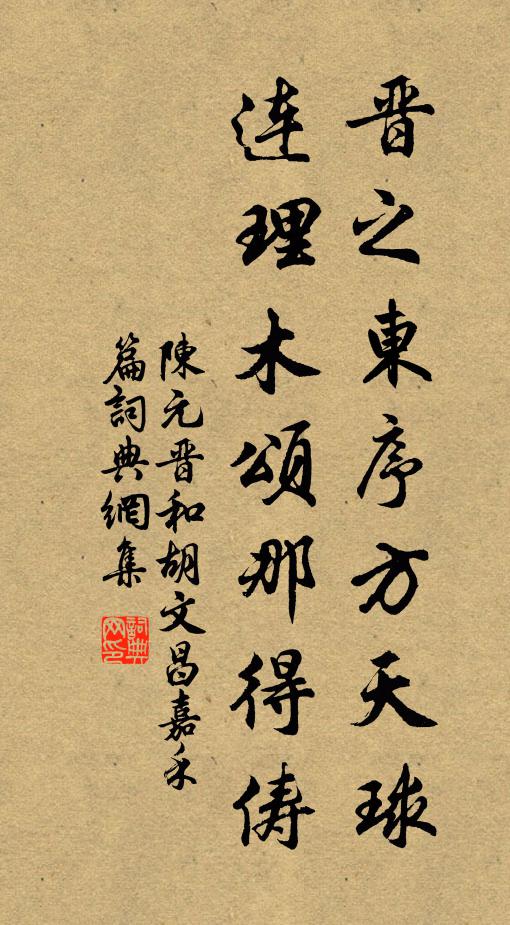 晋之東序方天球
連理木頌那得儔
陳元晋和胡文昌嘉禾
篇詞典網集
詞典網印